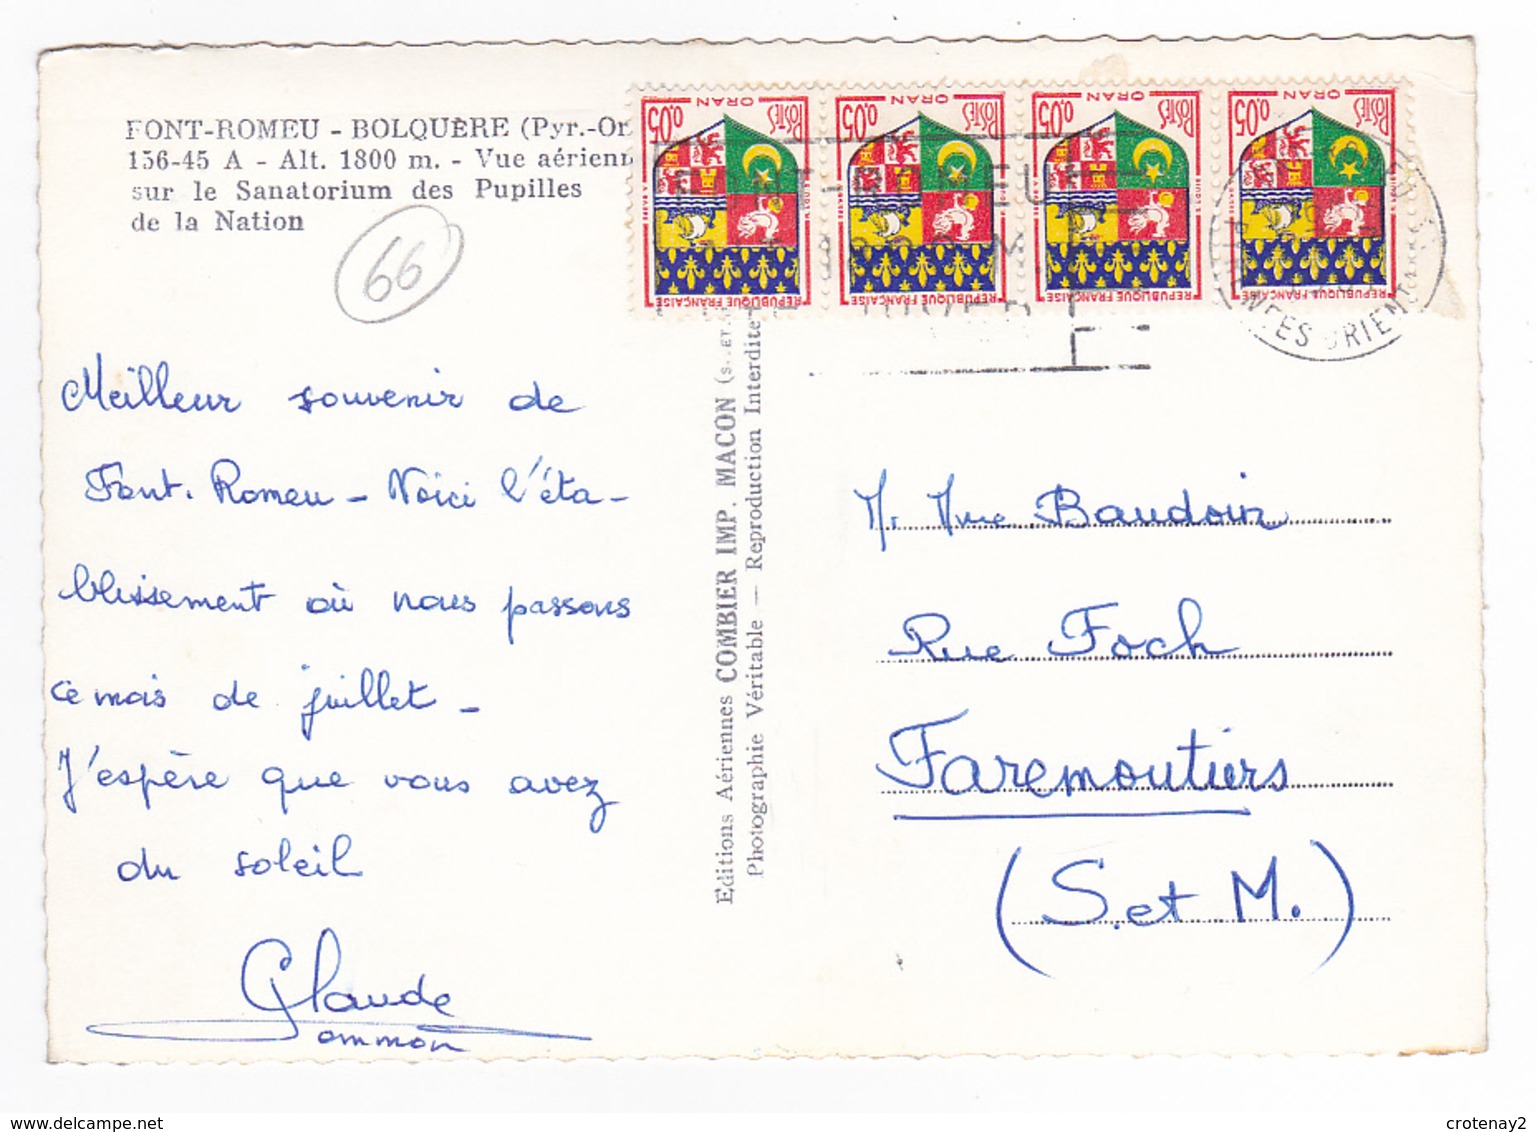 FONT-ROMEU - BOLQUÈRE (Pyr.-Or
156-45 A - Alt. 1800 m. - Vue aérienn
sur le Sanatorium des Pupilles
de la Nation
66
Meilleur souvenir de
Font. Romeu - Voici l'éta-
blissement où nous passons
ce mois de juillet -
J'espère que vous avez
du soleil
Claude
Editions Aériennes COMBIER IMP. MACON
Photographie Véritable — Reproduction Interdite
POSTES 0,05 ORAN
RÉPUBLIQUE FRANÇAISE
POSTES 0,05 ORAN
RÉPUBLIQUE FRANÇAISE
POSTES 0,05 ORAN
RÉPUBLIQUE FRANÇAISE
POSTES 0,05 ORAN
RÉPUBLIQUE FRANÇAISE
1800 M
M. Mme Baudoin
Rue Foch
Faremoutiers
(S. et M.)
www.delcampe.net
crotenay2